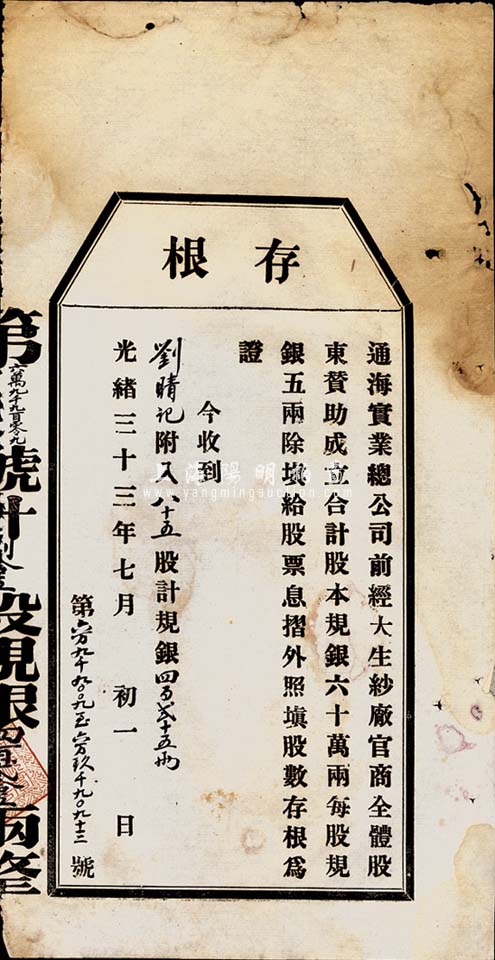 存根
通海實業總公司前經大生紗廠官商全體股
東贊助成立合計股本規銀六十萬兩每股規
銀五兩除填給股票息摺外照填股數存根爲
證
今收到
劉晴記附入八十五股計規銀四百弍十五兩
光緒三十三年七月初一日
第六万九千九百九至六万玖千九百九十三號
第六萬九千九百零九號計股規銀兩整
上海陽明拍卖
www.yangmingauction.com